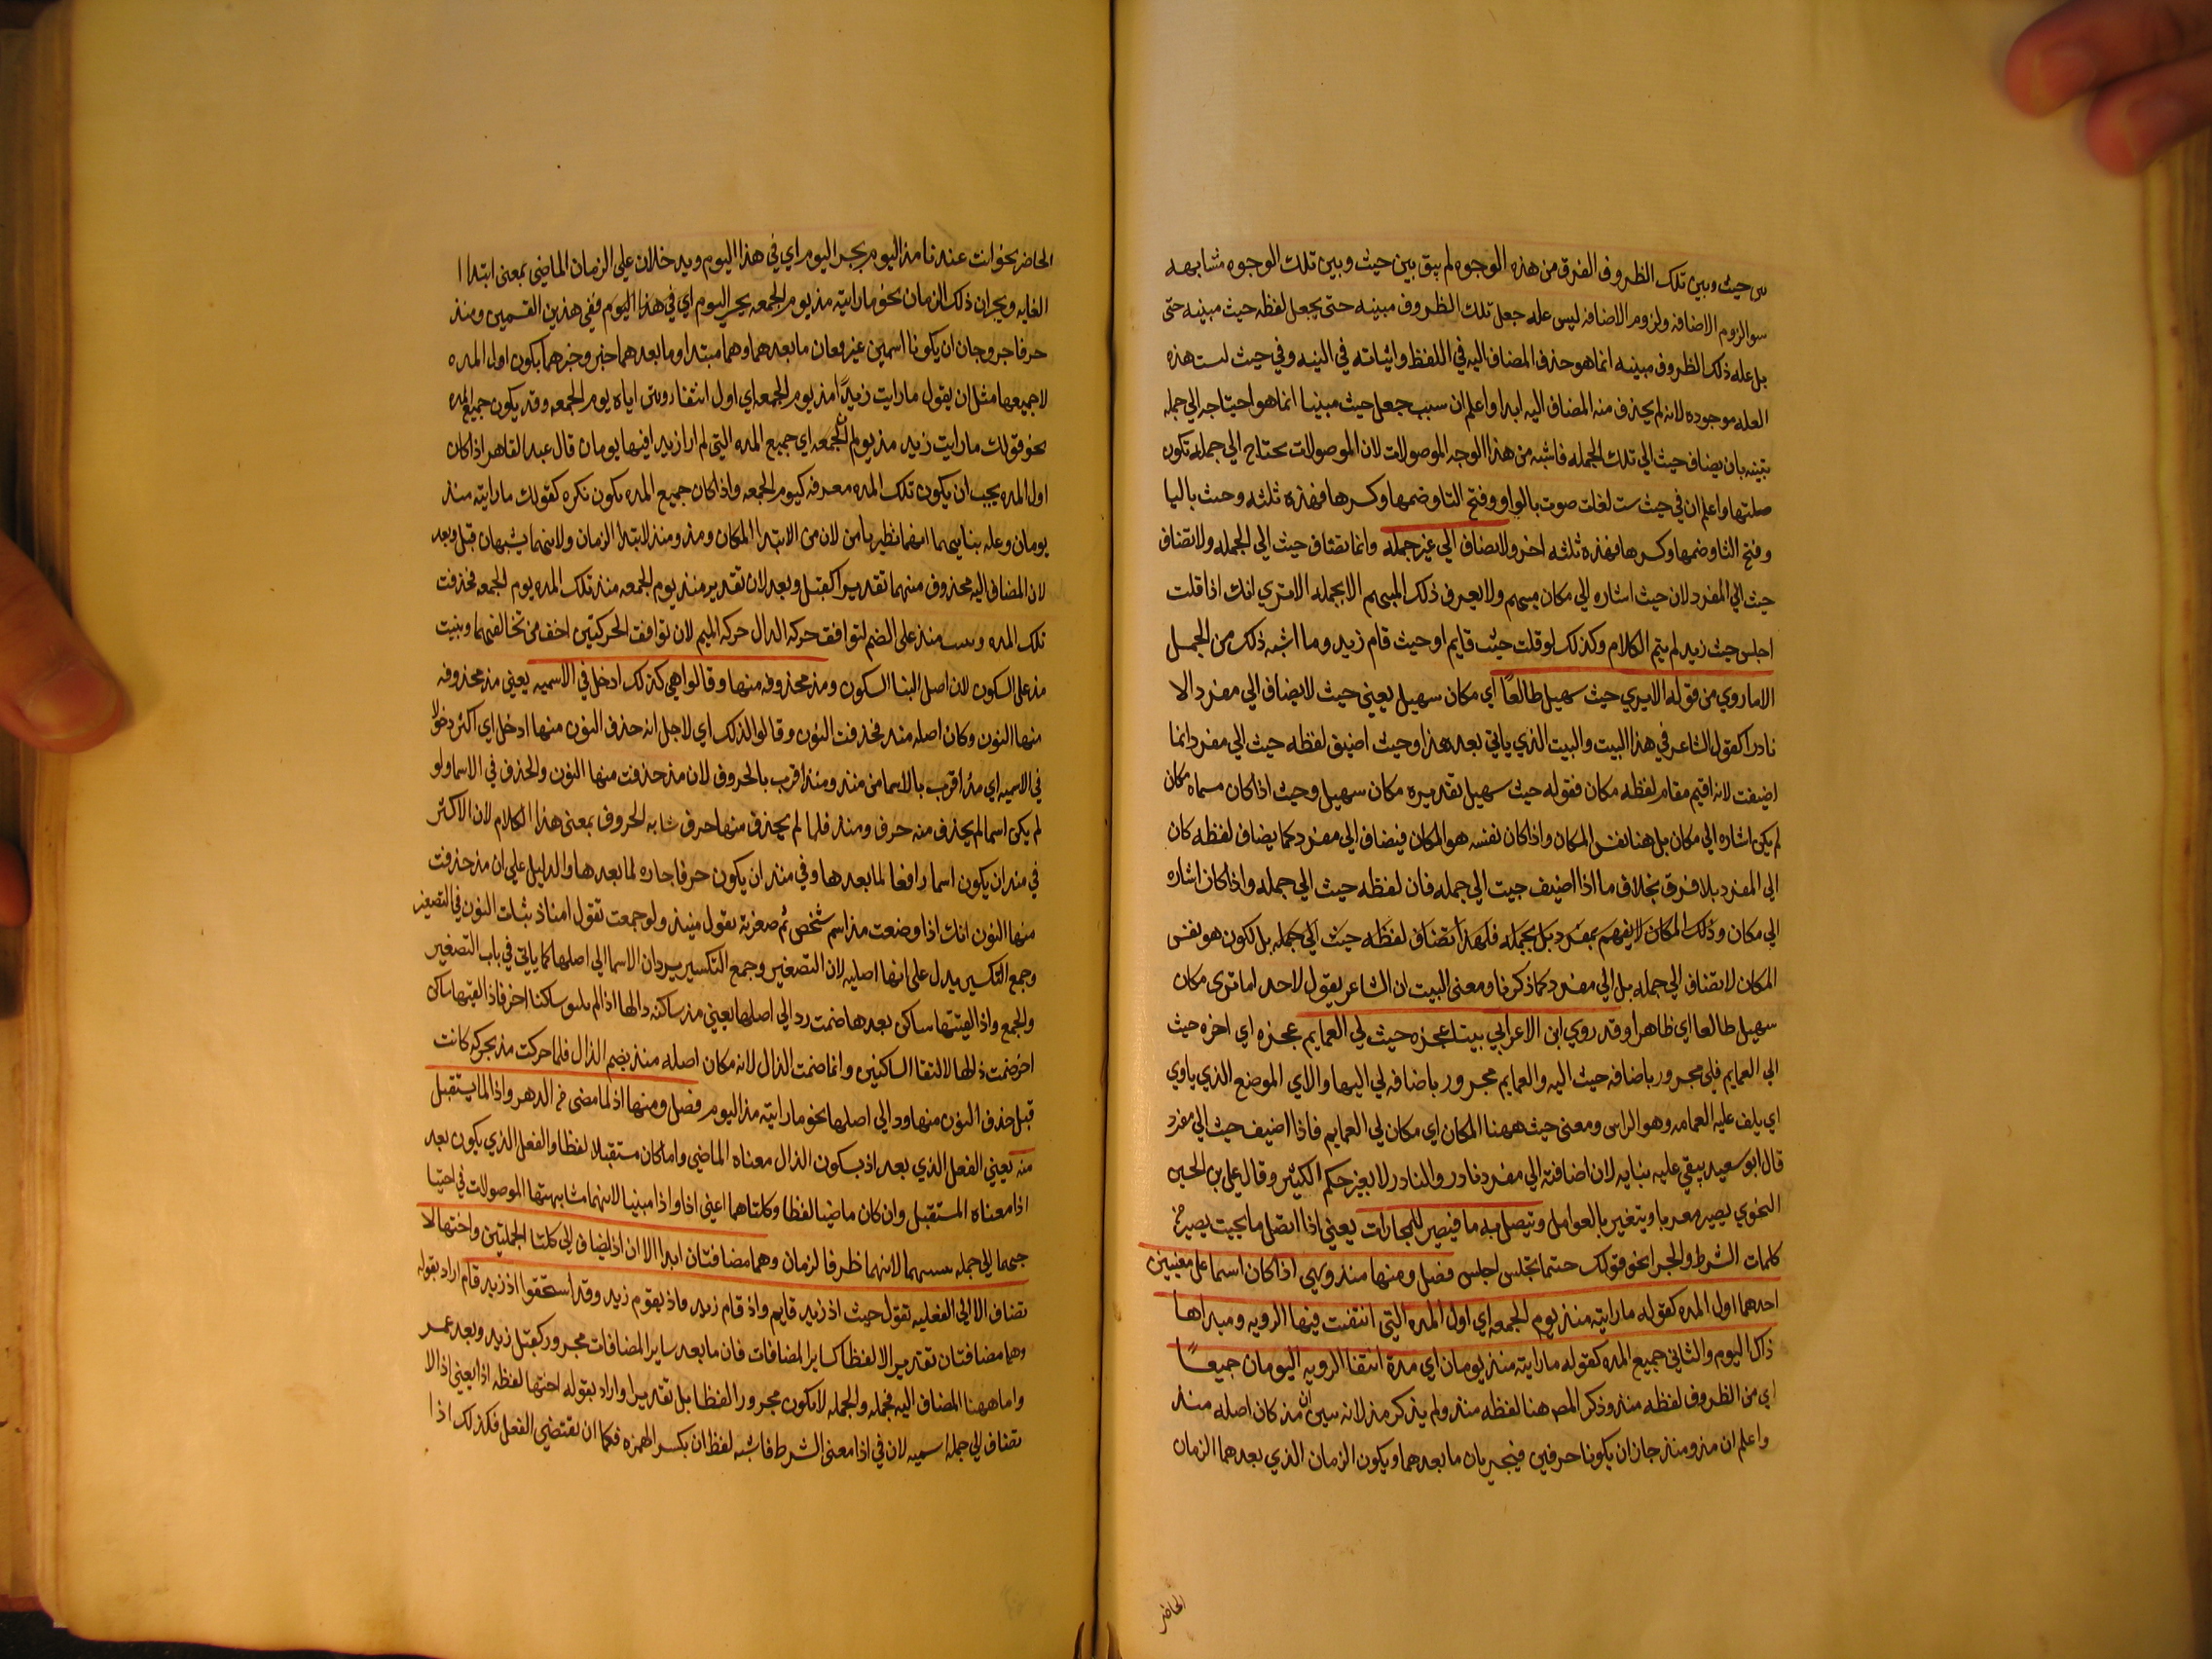 بين حيث وبين تلك الظروف الفرق من هذه الوجوه لم يبق بين حيث وبين تلك الوجوه مشابهه
سوا لزوم الاضافه ولزوم الاضافه ليس عله جعل تلك الظروف مبينه حتي يجعل لفظه حيث مبينه حتي
بل عله ذلك الظروف مبينه انما هو حذف المضاف اليه في اللفظ واثباته في النيه وفي حيث لست هذه
العله موجوده لانه لم يحذف منه المضاف اليه ابدا واعلم ان سبب جعل حيث مبينا انما هو احتياجه الي جمله
تبينه بان يضاف حيث الي تلك الجمله فاشبه من هذا الوجه الموصولات لان الموصولات يحتاج الي جمله تكون
صلتها واعلم ان في حيث ست لغات صوت بالواو وفتح التا وضمها وكسرها فهذه ثلثه وحيث باليا
وفتح الثا وضمها وكسرها فهذه ثلثه اخر ولا يضاف الي غير جمله وانما تضاف حيث الي الجمله ولا تضاف
حيث الي المفرد لان حيث اشاره الي مكان مبهم ولا يعرف ذلك المبهم الا بجمله الا تري انك اذا قلت
اجلس حيث زيد لم يتم الكلام وكذلك لو قلت حيث قايم او حيث قام زيد وما اشبه ذلك من الجمل
الا ما روي من قوله الا يري حيث سهيل طالعًا اي مكان سهيل يعني حيث لا يضاف الي مفرد الا
نادرا كقول الشاعر في هذا البيت والبيت الذي ياتي بعد هذا وحيث اضيق لفظه حيث الي مفرد انما
اضيفت لانه اقيم مقام لفظه مكان فقوله حيث سهيل تقديره مكان سهيل وحيث اذا كان مسماه مكان
لم يكن اشاره الي مكان بل هنا نفس المكان واذا كان نفسه هو المكان فيضاف الي مفرد كما يضاف لفظه كان
الي المفرد بلا فرق بخلاف ما اذا اضيف حيث الي جمله فان لفظه حيث الي جمله واذا كان اشاره
الي مكان وذلك المكان لا يفهم بمفرد بل بجمله فلهذا تضاف لفظه حيث الي جمله بل لكون هو نفس
المكان لا تضاف الي جمله بل الي مفرد كما ذكرنا ومعني البيت ان الشاعر يقول لاحد اما تري مكان
سهيل طالعا اي ظاهرا وقد روي ابن الاعرابي بيتا عجزه حيث لي العمايم عجزه اي اخره حيث
الي العمايم فلي مجرور باضافه حيث اليه والعمايم مجرور باضافه لي اليها والاي الموضع الذي ياوي
اي يلف عليه العمامه وهو الراس ومعني حيث ههنا المكان اي مكان لي العمايم فاذا اضيف حيث الي مفرد
قال ابو سعيد يبقي عليه بنايه لان اضافته الي مفرد نادر والنادر لا يغير حكم الكثير وقال علي بن الحسين
النحوي يصير معربا ويتغير بالعوامل ويتصل به ما فيصير للمجازات يعني اذا اتصل ما بحيث يصير من
كلمات الشرط والجرا نحو قولك حيثما تجلس اجلس فصل ومنها منذ وهي اذا كان اسما علي معنيين
احدهما اول المده كقوله ما رايته منذ يوم الجمعه اي اول المده التي انتفت فيها الرويه ومبداها
ذاك اليوم والثاني جميع المده كقوله ما رايته منذ يومان اي مدة انتفا الرويه اليومان جميعًا
اي من الظروف لفظه منذ وذكر المص هنا لفظه منذ ولم يذكر مذ لانه سين ان مذ كان اصله منذ
واعلم ان مذ ومنذ جاز ان يكونا حرفين فيجريان ما بعدهما ويكون الزمان الذي بعدهما الزمان
الحاضر
الحاضر نحو انت عندنا مذ اليوم بجر اليوم اي في هذا اليوم ويدخلان علي الزمان الماضي بمعني ابتدا
الغايه ويجران ذلك الزمان نحو ما رايته مذ يوم الجمعه بجر اليوم اي في هذا اليوم ففي هذين القسمين ومنذ
حرفا جر وجان ان يكونا اسمين غير فعان ما بعدهما وهما مبتدا وما بعدهما خبر وخبرهما يكون اول المده
لا جميعها مثل ان يقول ما رايت زيدًا مذ يوم الجمعه اي اول انتفا رويتي اياه يوم الجمعه وقد يكون جميع المده
نحو قولك ما رايت زيد مذ يوم الجمعه اي جميع المده التي لم ار زيدا فيها يومان قال عبد القاهر اذا كان
اول المده يجب ان يكون تلك المده معرفه كيوم الجمعه واذا كان جميع المده يكون نكره كقولك ما رايته منذ
يومان وعله بنايهما انهما نظيرتا من لان من الابتدا المكان ومذ ومنذ لابتدا الزمان ولانهما يشبهان قبل وبعد
لان المضاف اليه محذوف منهما تقديرا كقبل وبعد لان تقدير منذ يوم الجمعه منذ تلك المده يوم الجمعه فحذفت
تلك المده وبنيت منذ علي الضم لتوافق حركه الدال حركه الميم لان توافق الحركتين اخف من تخالفهما وبنيت
مذ علي السكون لان اصل البنا السكون ومذ محذوفه منها وقالوا هي كذلك ادخل في الاسميه يعني مذ محذوفه
منها النون وكان اصله منذ فحذفت النون وقالوا لذلك اي لاجل انه حذف النون منها ادخل اي اكثر دخولا
في الاسميه اي مذ اقرب بالاسما من منذ ومنذ اقرب بالحروف لان مذ حذفت منها النون والحذف في الاسما ولو
لم يكن اسما لم يحذف منه حرف ومنذ فلما لم يحذف منها حرف شابه الحروف بمعني هذا الكلام لان الاكثر
في مذ ان يكون اسما رافعا لما بعدها وفي منذ ان يكون حرفا جاره لما بعدها والدليل علي ان مذ حذفت
منها النون انك اذا وضعت مذ اسم شخص ثم صغرته تقول منيذ ولو جمعت تقول امناذ بثبات النون في التصغير
وجمع التكسير يدل علي انها اصليه لان التصغير وجمع التكسير يردان الاسما الي اصلها كما ياتي في باب التصغير
والجمع واذا لقيتها ساكن بعدها ضمت رد الي اصلها يعني مذ ساكنه دالها اذا لم ساكنا اخر فاذا لقيتها ساكن
اخر ضمت ذالها لالتقا الساكنين وانما ضمت الذال لانه مكان اصله منذ بضم الذال فلما حركت مذ بحركه كانت
قبل حذف النون منها ود الي اصلها نحو ما رايته مذ اليوم فصل ومنها اذ لما مضي من الدهر واذا لما يستقبل
منه يعني الفعل الذي بعد اذ بسكون الذال معناه الماضي وما كان مستقبلا لفظا والفعل الذي يكون بعد
اذا معناه المستقبل وان كان ماضيا لفظا وكلتاهما اعني اذا واذ مبنيا لانهما مشابهتها الموصولات في احتيا
جهما الي جمله لانهما ظرفا لزمان وهما مضافتان ابدا الا ان اذ يضاف الي كلتا الجملتين واختها لا
تضاف الا الي الفعليه تقول حيث اذ زيد قايم واذ قام زيد واذ يقوم زيد وقد استحقوا اذ زيد قام اراد بقوله
وهما مضافتان تقديرا لا لفظا كساير المضافات فان ما بعد ساير المضافات مجرور كقبل زيد وبعد عمر
واما ههنا المضاف اليه فجمله والجمله لا تكون مجرور لفظا بل تقديرا واراد بقوله اختها لفظه اذا يعني اذا لا
تضاف الي جمله اسميه لان في اذا معني الشرط فاشبه لفظ ان بكسر الهمزه فكما ان تقتضي الفعل فكذلك اذا